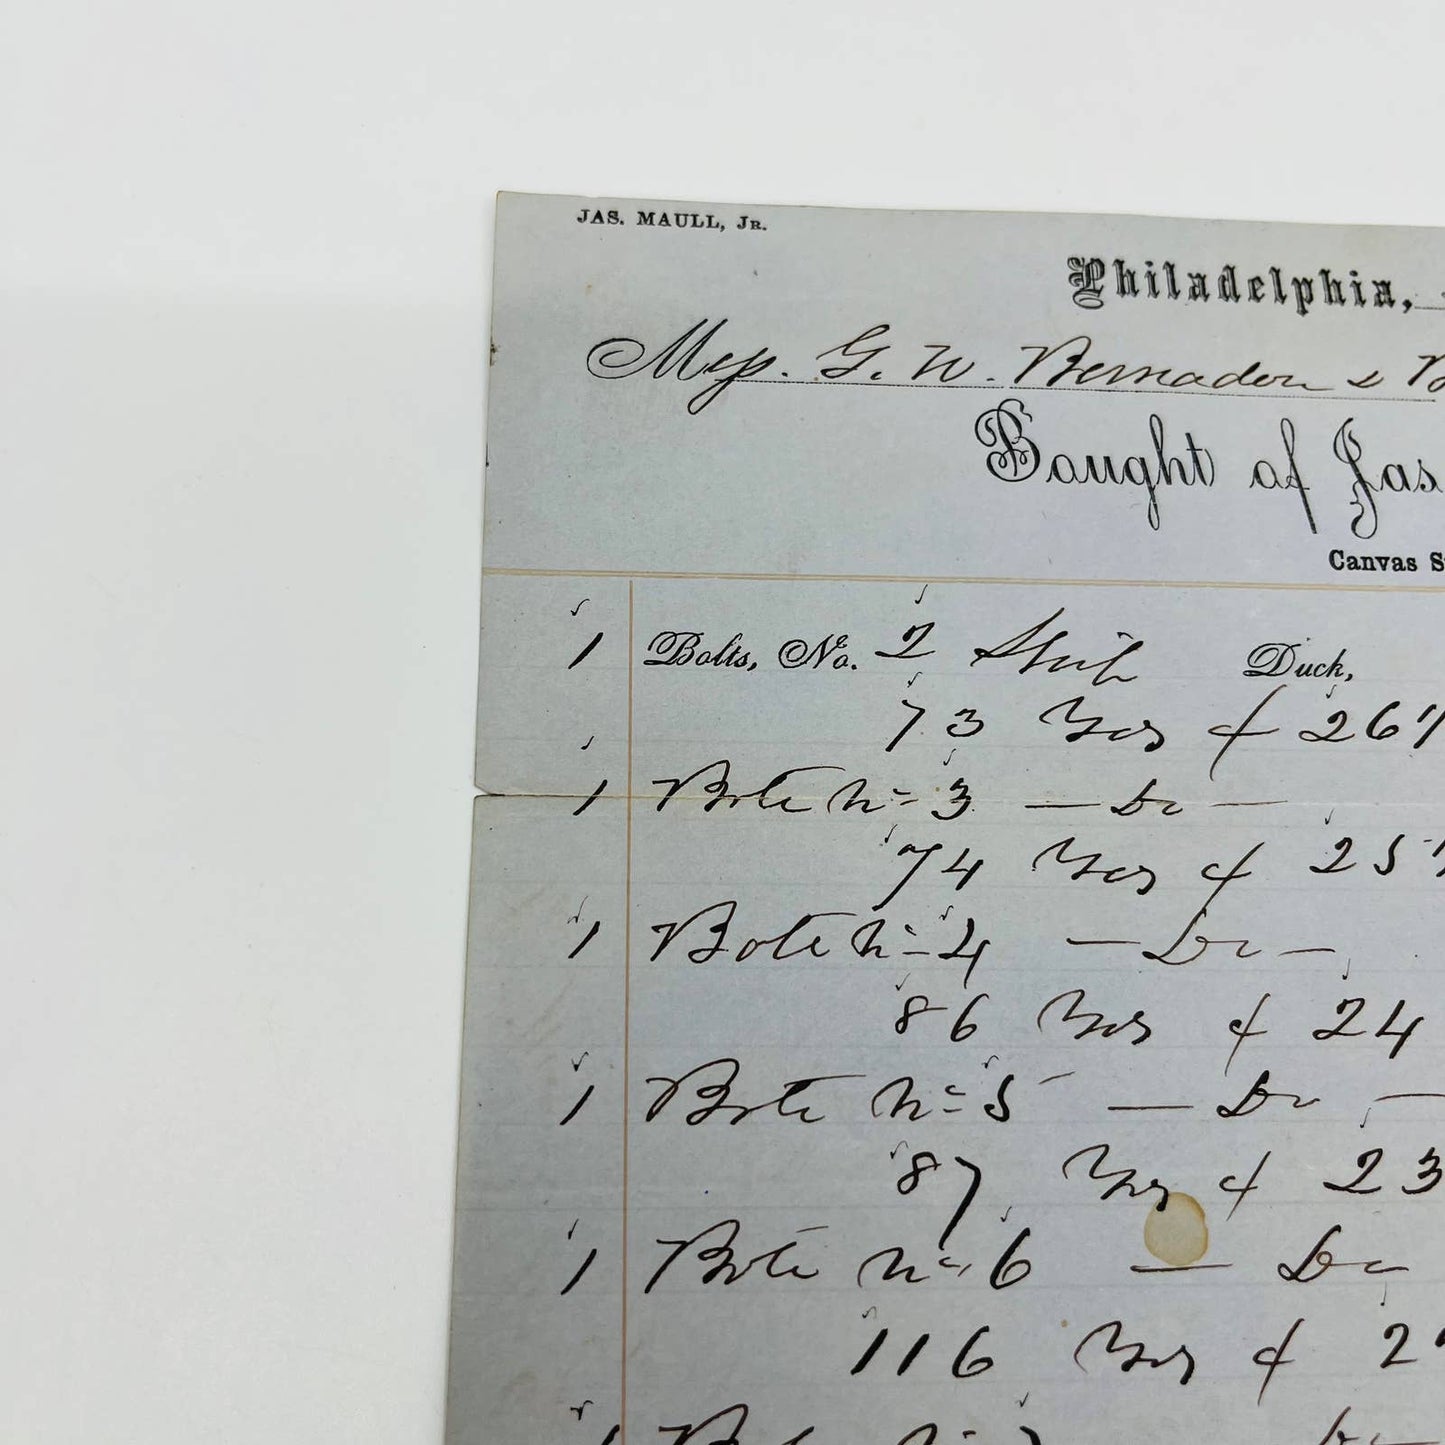 JAS. MAULL, JR.
Philadelphia,
Mess. G. W. Bernadou & B
Bought of Jas
Canvas S
1 Bolts, No. 2 Ship Duck,
73 Yds @ 26
1 Bolt No 3 — Do —
74 Yds @ 25
1 Bolt No 4 — Do —
86 Yds @ 24
1 Bolt No 5 — Do —
87 Yds @ 23
1 Bolt No 6 — Do
116 Yds @ 2